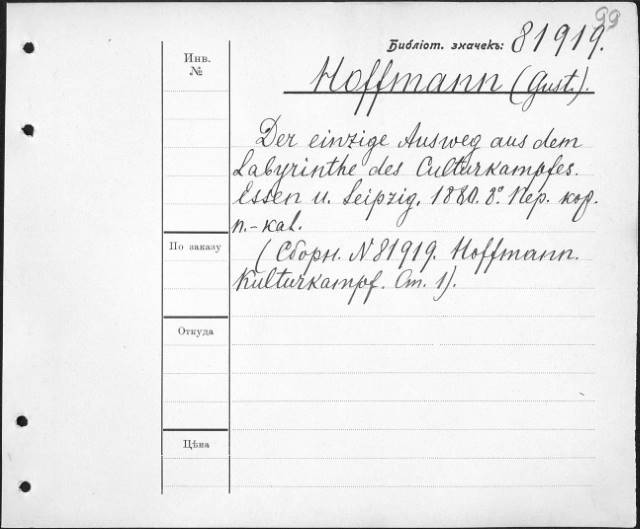 99
Библіот. значекъ: 81919.
Инв.
№
Hoffmann (Gust.).
Der einzige Ausweg aus dem
Labyrinthe des Culturkampfes.
Essen u. Leipzig. 1880. 8°. Пер. кор.
п.-кал.
По заказу
(Сборн. N 81919. Hoffmann.
Kulturkampf. Ст. 1).
Откуда
Цѣна